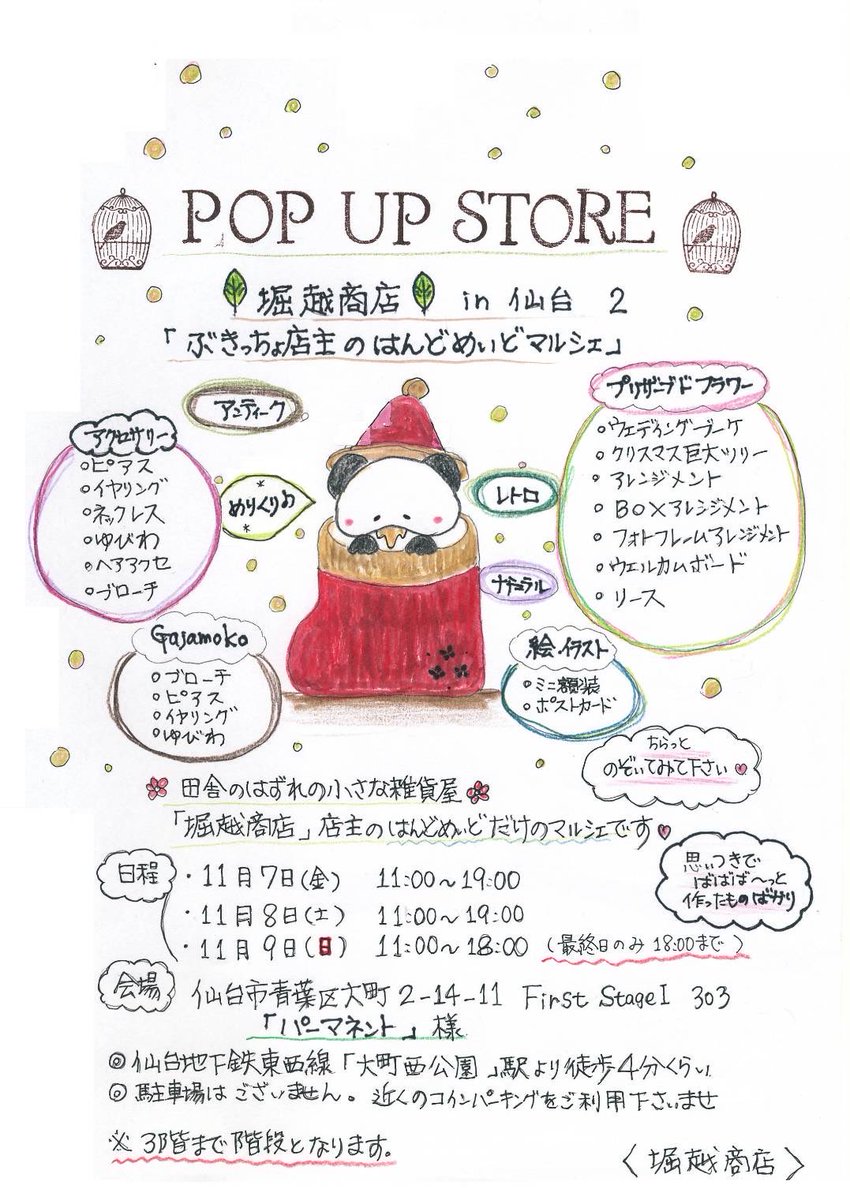 POP UP STORE
堀越商店 in 仙台 2
「ぶきっちょ店主のはんどめいどマルシェ」
アンティーク
プリザーブドフラワー
○ウェディングブーケ
○クリスマス巨大ツリー
○アレンジメント
○BOXアレンジメント
○フォトフレームアレンジメント
○ウェルカムボード
○リース
アクセサリー
○ピアス
○イヤリング
○ネックレス
○ゆびわ
○ヘアアクセ
○ブローチ
めりくりお
レトロ
ナチュラル
Gasamoko
○ブローチ
○ピアス
○イヤリング
○ゆびわ
絵イラスト
○ミニ額装
○ポストカード
ちらっと
のぞいてみて下さい
田舎のはずれの小さな雑貨屋
「堀越商店」店主のはんどめいどだけのマルシェです
思いつきで
ばばば〜っと
作ったものばかり
日程
・11月7日(金) 11:00〜19:00
・11月8日(土) 11:00〜19:00
・11月9日(日) 11:00〜18:00 (最終日のみ 18:00まで)
会場
仙台市青葉区大町2-14-11 First Stage I 303
「パーマネント」様
◎仙台地下鉄東西線「大町西公園」駅より徒歩4分くらい
◎駐車場はございません。近くのコインパーキングをご利用下さいませ
※3階まで階段となります。
〈堀越商店〉